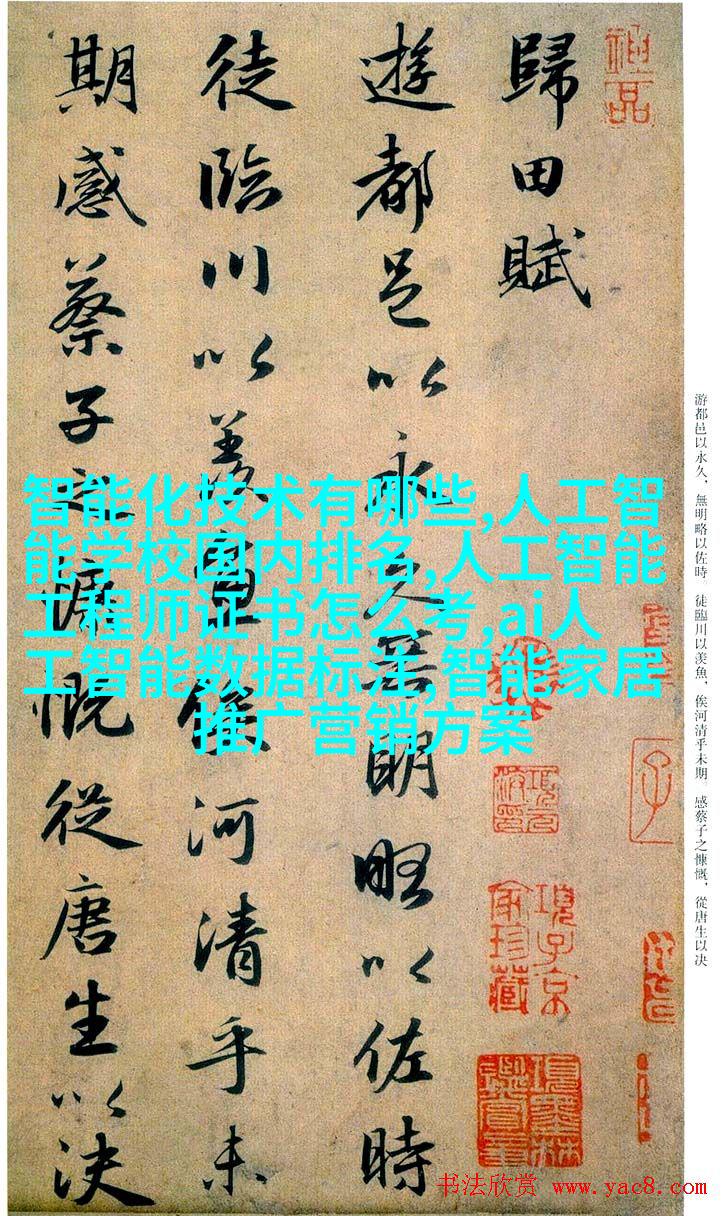 神品
歸田賦
遊都邑以永久無明略以佐時
徒臨川以羨魚俟河清乎未
期感蔡子之慷慨從唐生以決
智能化技术有哪些,人工智
能学校国内排名,人工智能
工程师证书怎么考,ai人
工智能数据标注,智能家居
推广营销方案
游都邑以永久，無明略以佐時　徒臨川以羨魚，俟河清乎未期。感蔡子之慷慨，從唐生以决
子
項子京
家珍藏
項墨林
鑒賞章
书法欣赏 www.yac8.com